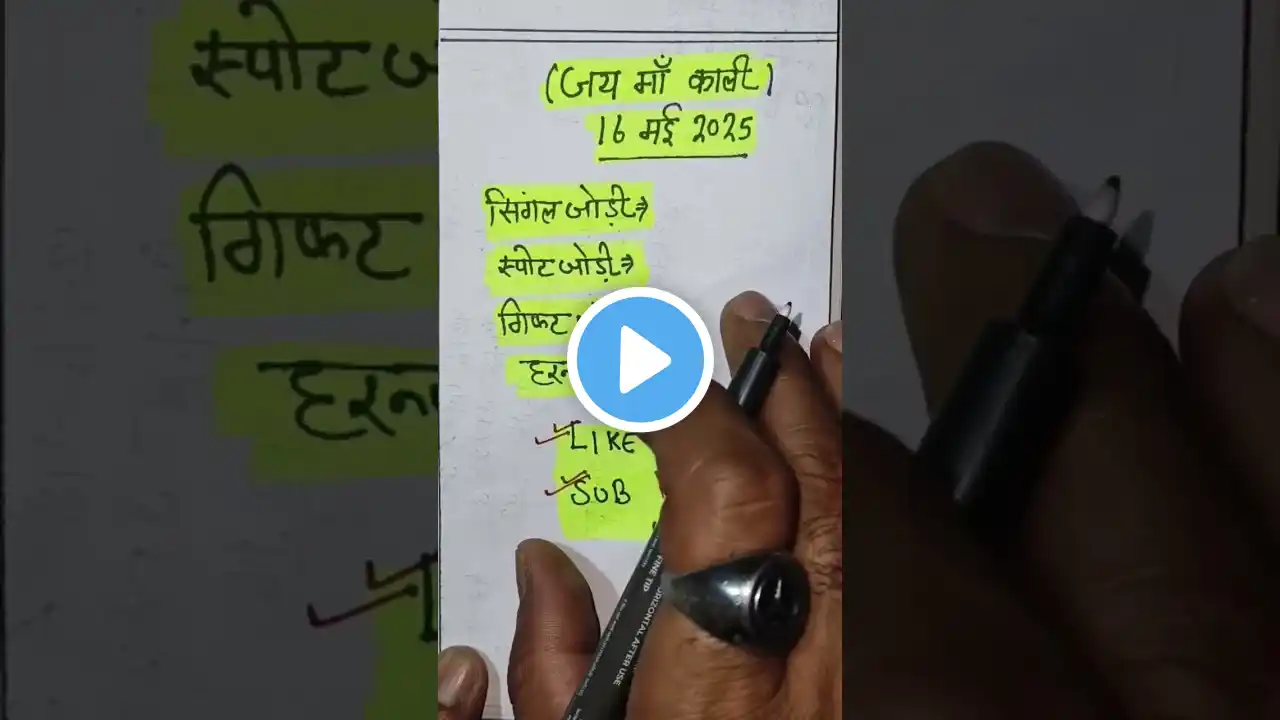 (जय माँ काली)
16 मई 2025
सिंगल जोड़ी⇒
स्पोट जोड़ी⇒
गिफ्ट
LIKE
SUB
FINE TIP
HORIZONTAL AFTER USE